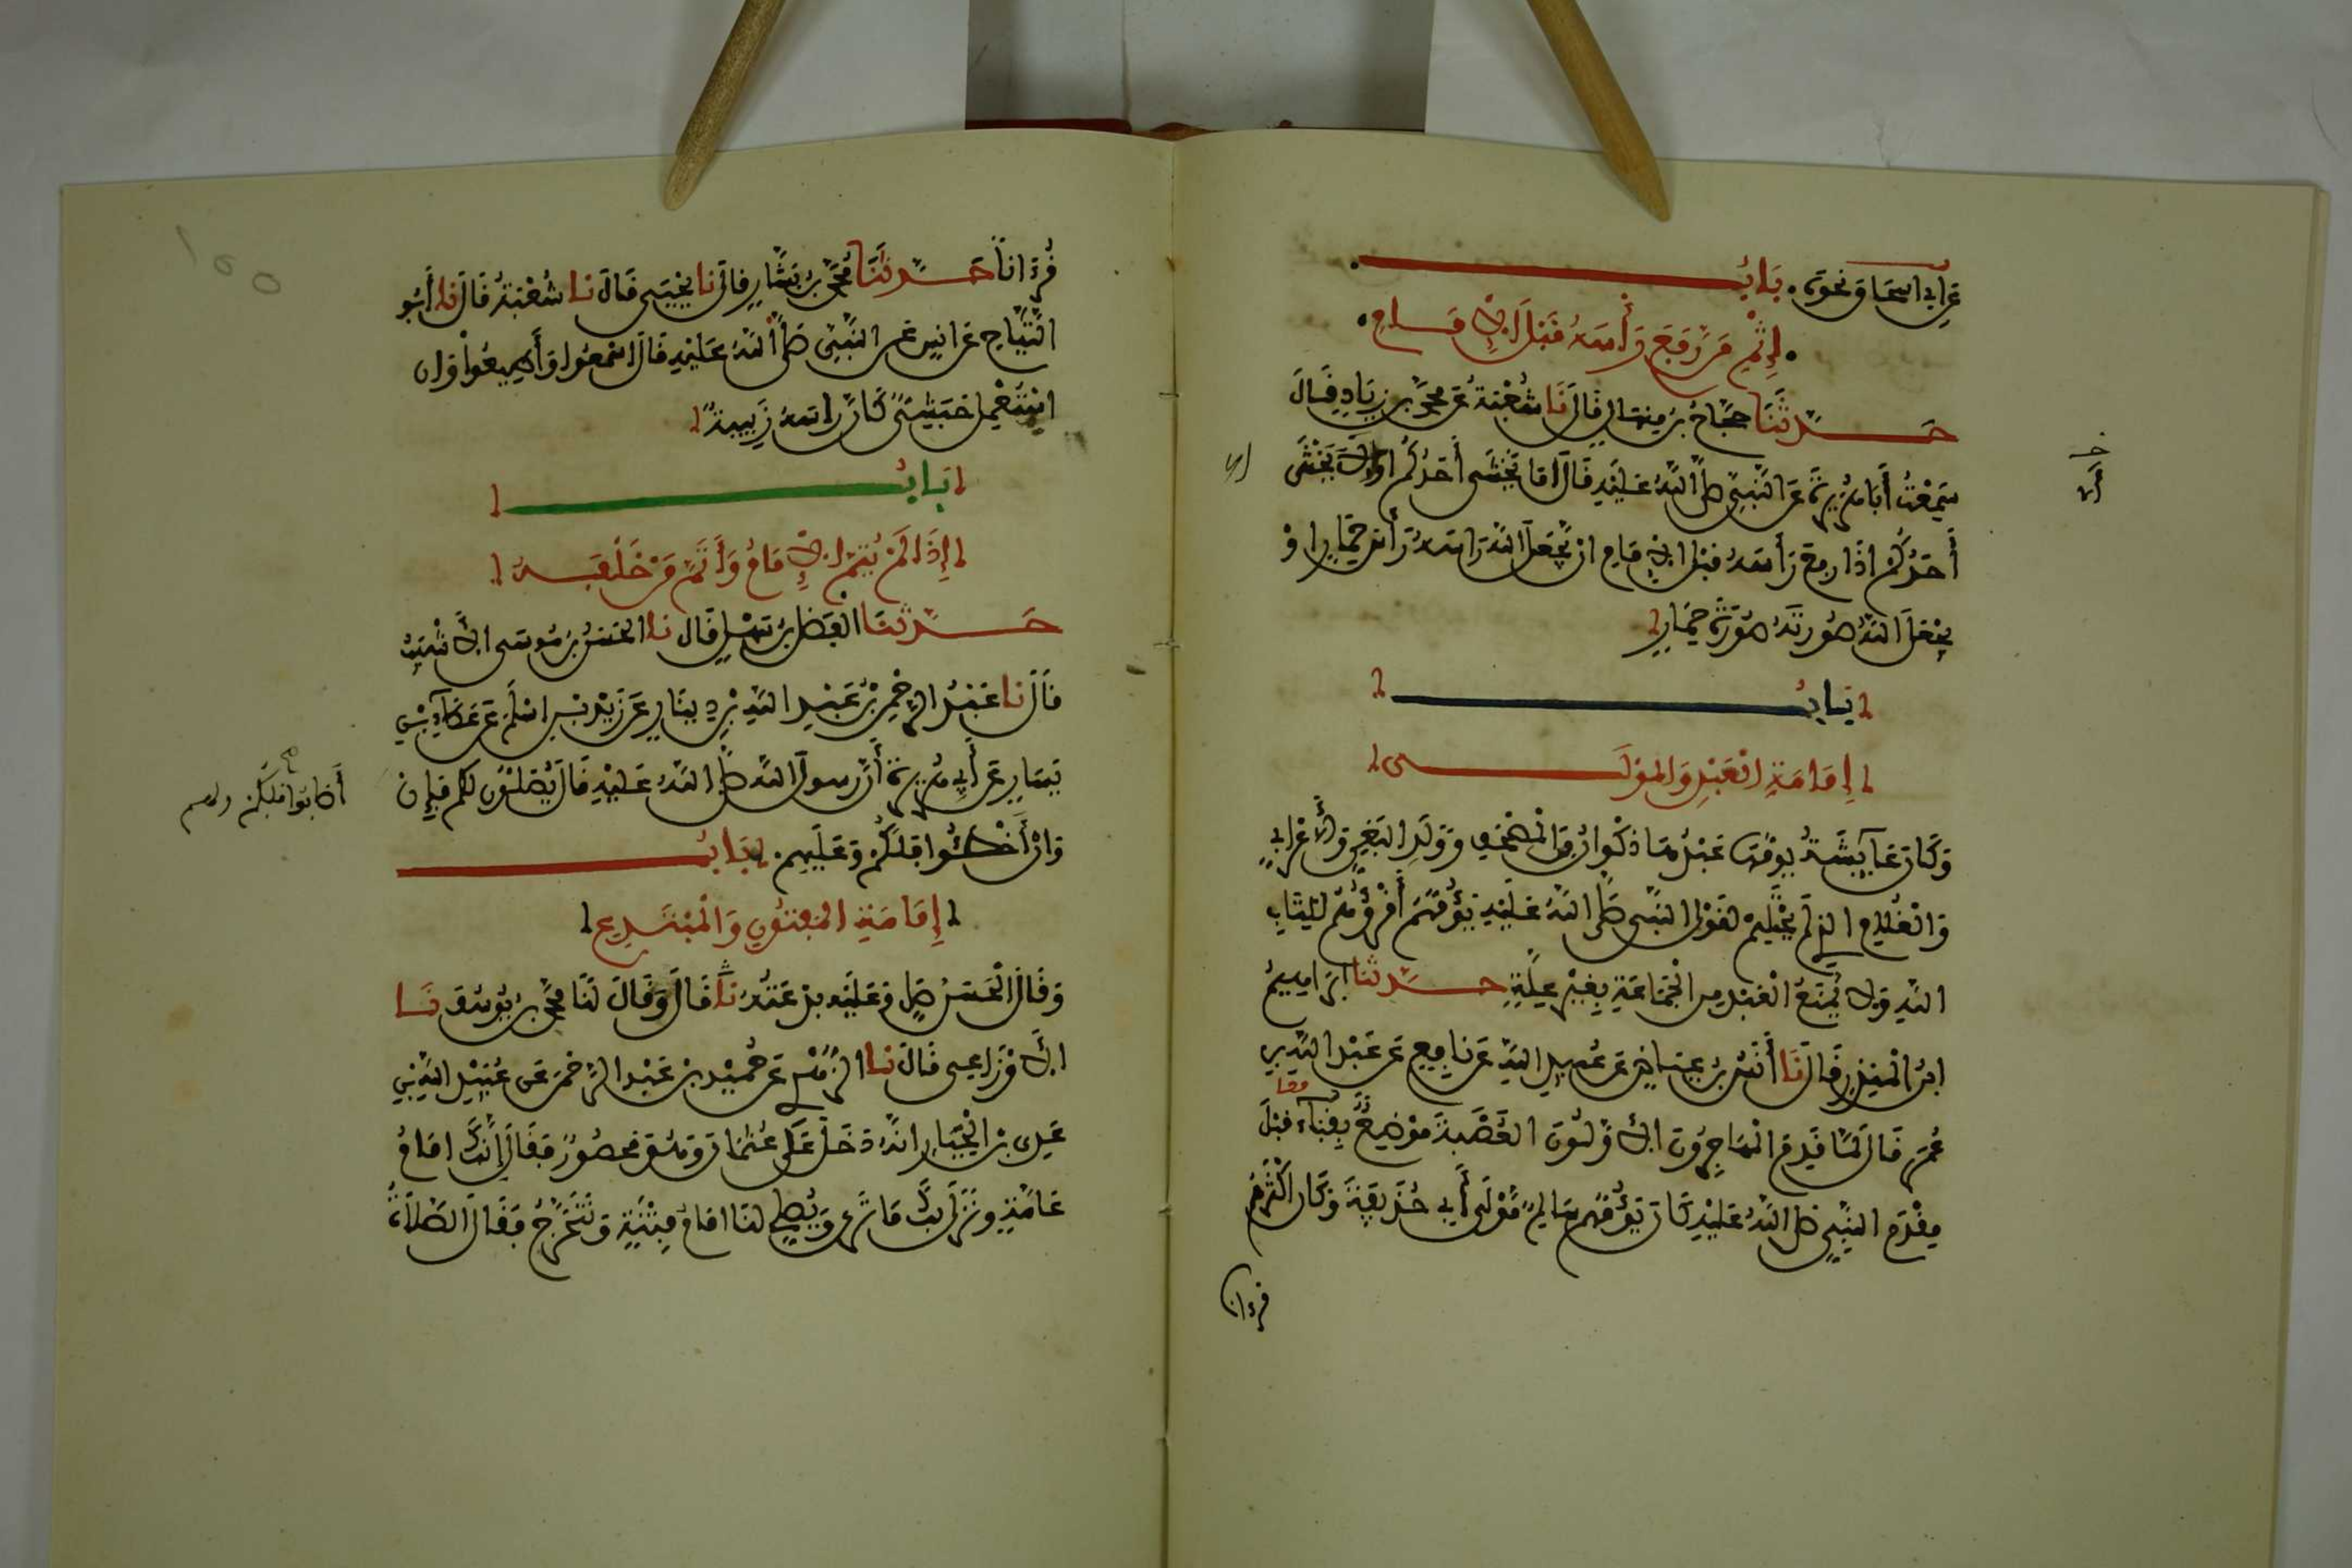 عن أبي اسحاق نحوه. بَابُ
إِثْمِ مَن رَّفَعَ رَأْسَهُ قَبْلَ الإِمَامِ
حَدَّثَنَا حجَّاجُ بن مِنهَالٍ قَالَ نَا شُعْبَةُ عَن محمَّد بن زِيَادٍ قَالَ
سَمِعْتُ أَبَا هُرَيرَةَ عَن النَّبِيِّ صلى اللَّهُ عَلَيْهِ قَالَ أمَا يَخْشَى أَحَدُكُم أوْ لا يَخْشَى
أَحَدُكُمْ اذَا رفع رَأسَهُ قبْل الامَامِ ان يَّجْعَلَ اللَّهُ رَاسَهُ رَأسَ حِمَارٍ اوْ
يجْعَلَ اللَّهُ صُورتَهُ صُورَةَ حِمَارٍ
بَابُ
إِمَامَةِ الْعَبْدِ وَالمَوْلَى
وَكَانَت عَايِشَةُ يَؤمُّهَا عَبْدُهَا ذَكْوَانُ مِنَ الْمُصْحَفِ وَوَلَدِ الْبَغِيِّ وَالأَعْرَابِيِّ
وَالْغُلَامِ الذِي لَمْ يَحْتَلِمْ لقَوْلِ النَّبِيِّ صَلى اللَّهُ عَلَيْهِ يَؤُمُّهُمْ أَقْرَؤُهُمْ لِكِتَابِ
اللَّهِ وَلا يُمْنَعُ الْعَبْدُ مِن الْجَمَاعَةِ بِغَيْرِ عِلَّةٍ حَدَّثَنَا ابْرَاهِيمُ
ابْنُ الْمُنذِرِ قَالَ نَا أَنَسُ بْنُ عِيَاضٍ عَن عُبَيدِ اللَّهِ عَن نَافِعٍ عَن عَبْدِ اللَّهِ بن
عُمَرَ قَالَ لَمَّا قَدِمَ الْمُهَاجِرُونَ الأَوَّلُونَ الْعُصْبَةَ مَوْضِعٌ بِقُبَاءٍ قَبْلَ
معا
مَقْدَمِ النَّبِيِّ صلى اللَّهُ عَلَيْهِ كَانَ يَؤُمُّهُم سَالِمٌ مَوْلَى أَبِي حُذَيفَةَ وَكَان أكْثَرَهُمْ
قرءانا
قُرْءَانًا حَدَّثَنَا مُحَمَّدُ بْنُ بَشَّارٍ قَالَ نا يَحْيَى قَالَ نا شُعْبَةُ قَالَ نا أَبُو
التَّيَّاحِ عَن انَسٍ عَن النَّبِيِّ صلى اللَّهُ عَلَيْهِ قَالَ اسْمَعُوا وَأَطِيعُوا وَان
اسْتُعْمِلَ حَبَشِيٌّ كَأنَّ رَاسَهُ زَبِيبَةٌ
بَابُ
إِذَا لَمْ يُتِمَّ الإِمَامُ وَأَتَمَّ مَنْ خَلْفَهُ
حَدَّثَنَا الْفَضْلُ بْنُ سَهْلٍ قَالَ نا الْحَسَنُ بْنُ مُوسَى الأَشْيَبُ
قَالَ نا عَبْدُ الرَّحْمنِ بْنُ عَبْدِ اللَّهِ بْنِ دِينَارٍ عَن زَيْدِ بْنِ اسْلَمَ عَن عَطَاءِ بْنِ
يَسَارٍ عَن أَبِي هُرَيرَةَ أَنَّ رسول اللَّه صلى اللَّهُ عَلَيْهِ قَالَ يُصَلُّونَ لكُم فَإِن
أَصَابُوا فَلَكُمْ
وَانْ أَخْطَئُوا فَلَكُمْ وَعَلَيهِمْ بَابُ
إِمَامَةِ الْمَفْتُونِ وَالْمُبْتَدِعِ
وَقَالَ الْحَسَنُ صَلِّ وَعَلَيْهِ بِدْعَتُهُ نا قَالَ وَقَالَ لَنَا محمَّد بن يُوسُفَ نَا
الأَوْزَاعِي قَالَ نَا الزُّهْرِي عَن حُمَيْدِ بْنِ عَبْدِ الرَّحْمنِ عَن عُبَيْدِ اللَّهِ بْنِ
عَدِي بْنِ الْخِيَارِ انَّهُ دَخَلَ عَلَى عُثْمَانَ وَهُوَ مَحصُورٌ فَقَالَ إِنَّكَ امَامُ
عَامَّةٍ وَنَزَلَ بِكَ مَا تَرَى وَيُصَلِّي لَنَا امَامُ فِتْنَةٍ وَنَتَحَرَّجُ فَقَالَ الصَّلَاةُ